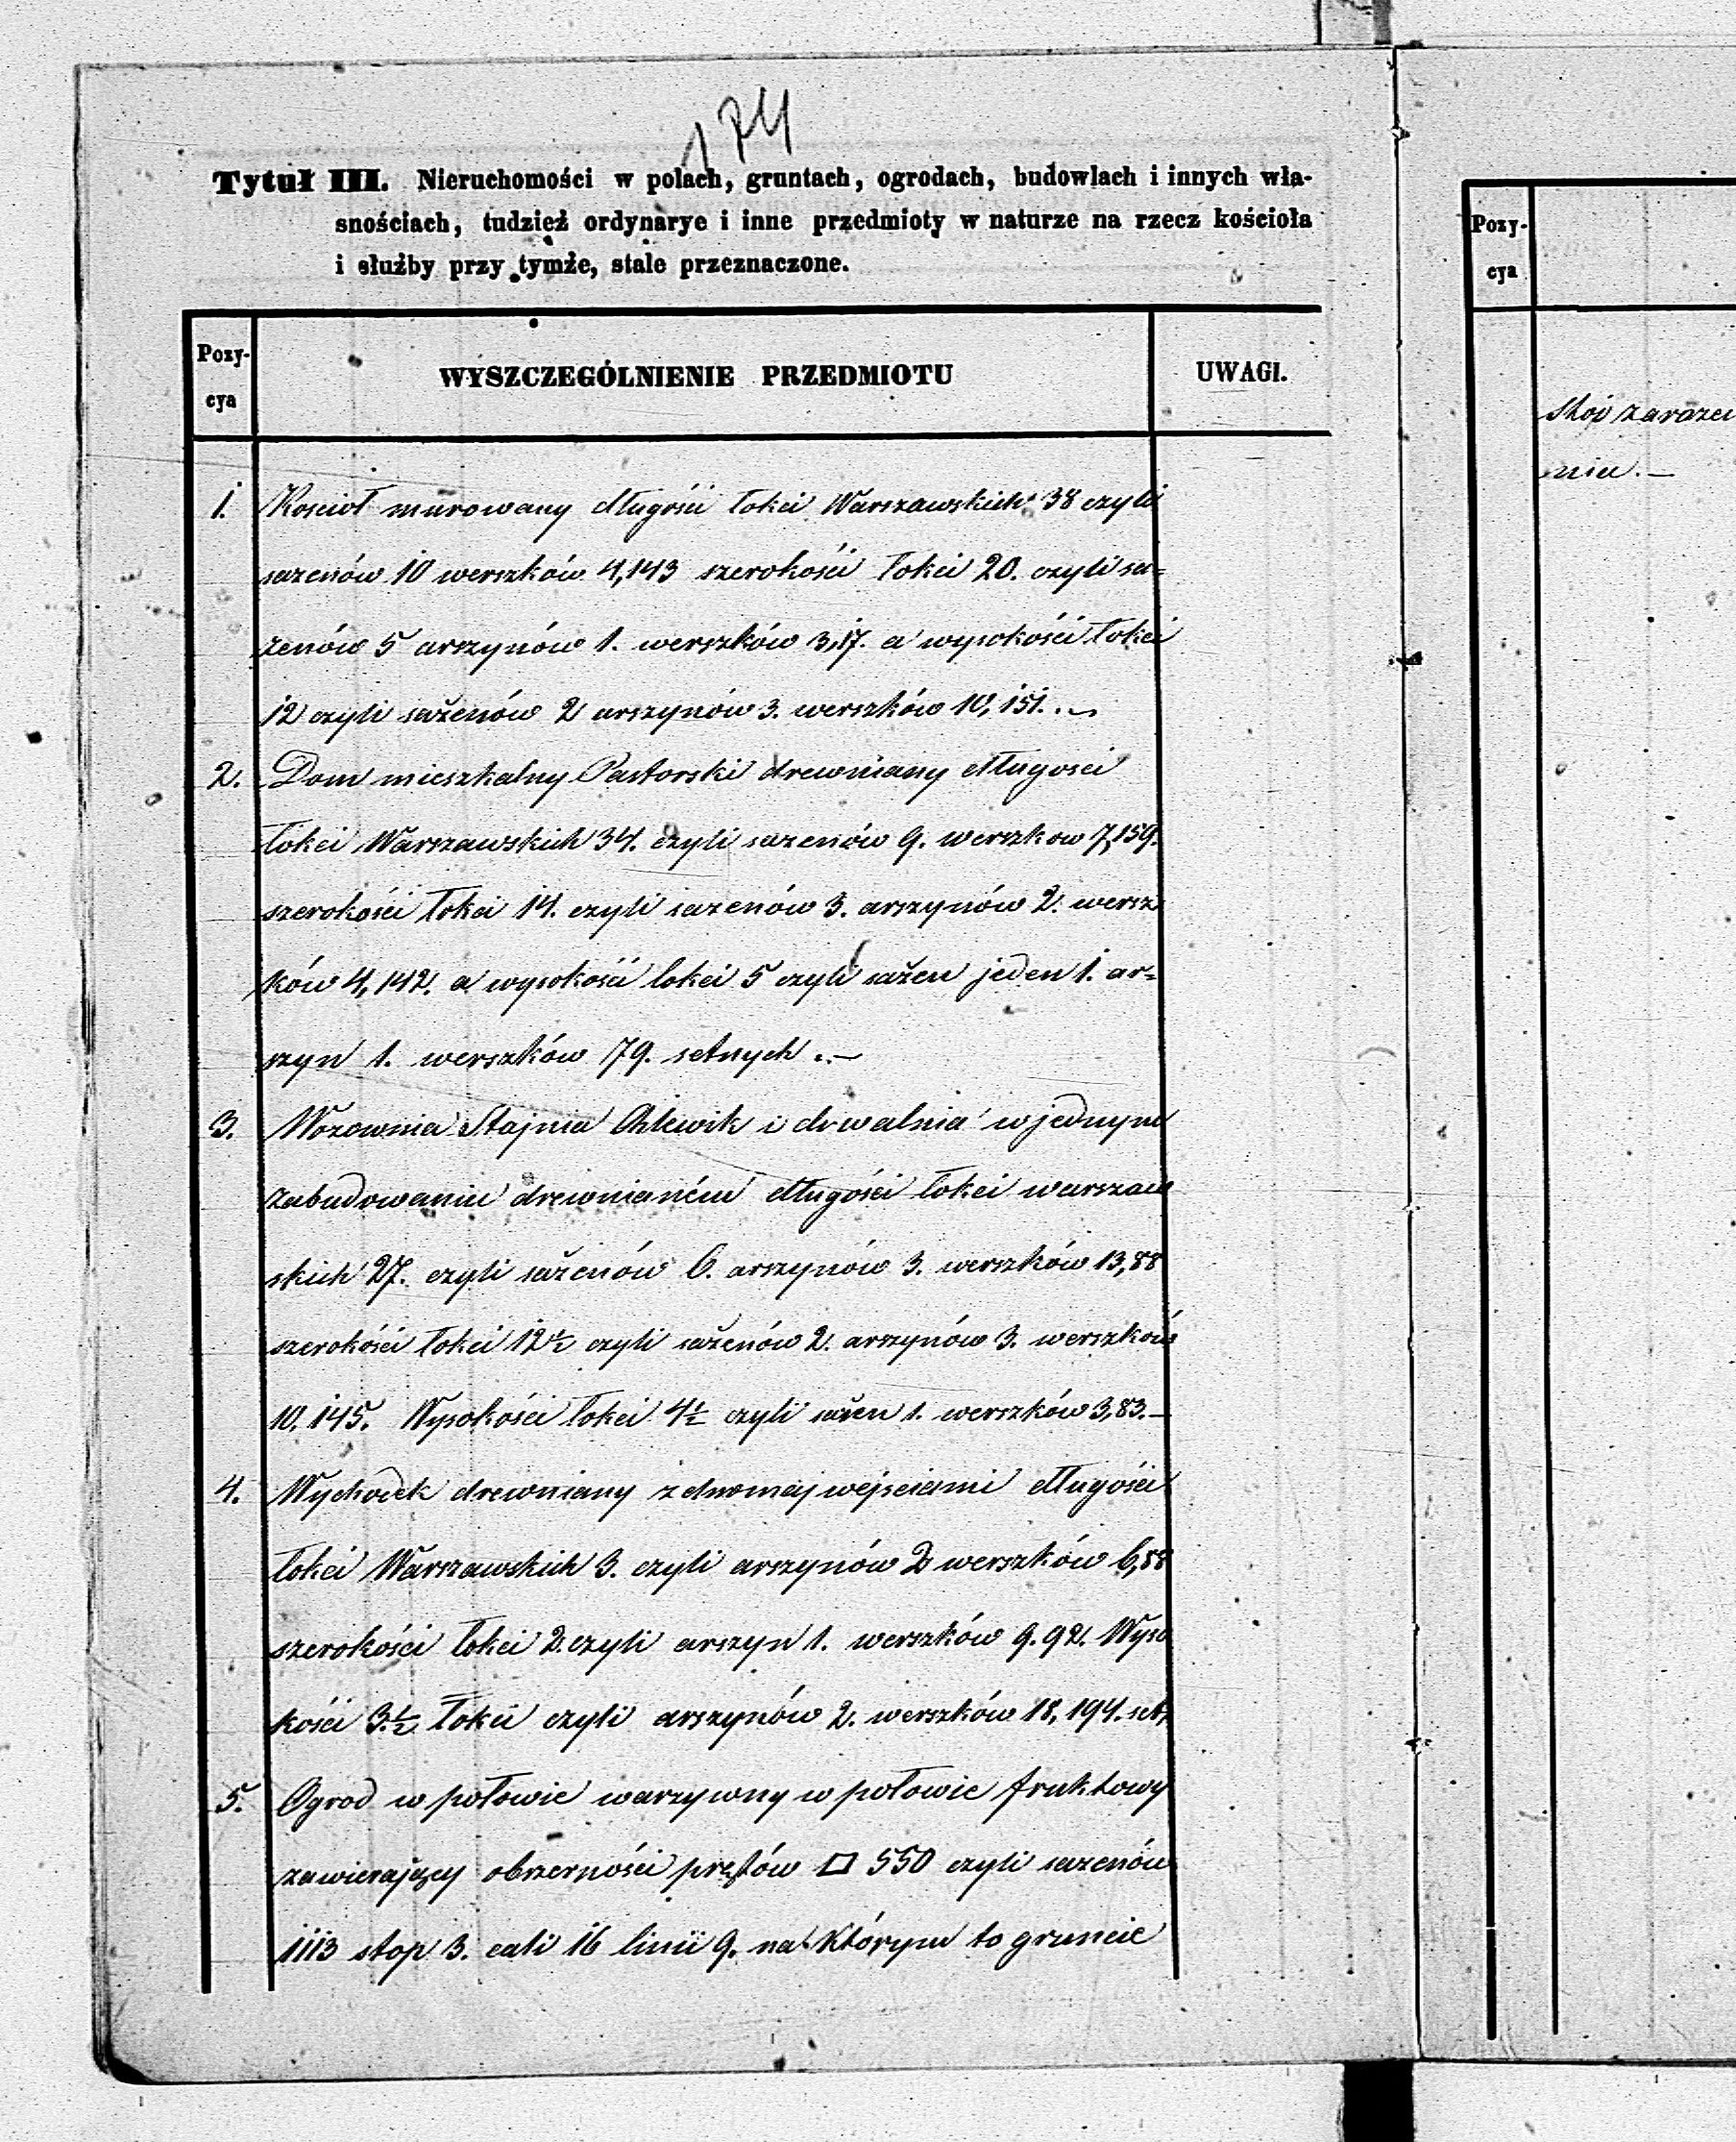 174
Tytuł III. Nieruchomości w polach, gruntach, ogrodach, budowlach i innych wła-
snościach, tudzież ordynarye i inne przedmioty w naturze na rzecz kościoła
i służby przy tymże, stale przeznaczone.
Pozy-
cya
WYSZCZEGÓLNIENIE PRZEDMIOTU
UWAGI.
1. Kosciół murowany długości łokci Warszawskich 38 czyli
sazenów 10 werszków 4,143 szerokości łokci 20. czyli sa=
zenów 5 arszynów 1. werszków 3,17. a wysokości łokci
12 czyli sażenów 2 arszynów 3. werszków 10,151..—
2. Dom mieszkalny Pastorski drewniany długosci
łokci Warszawskich 34. czyli sazenów 9. werszkow 7,159.
szerokości łokci 14. czyli sazenów 3. arszynów 2. wersz
ków 4,142. a wysokości łokci 5 czyli sażen jeden 1. ar=
szyn 1. werszków 79. setnych .—
3. Wozownia Stajnia Chlewik i drwalnia w jednym
zabudowaniu drewnianém długości łokci warszaw
skich 27. czyli sażenów 6. arszynów 3. werszków 13,88
szerokości łokci 12½ czyli sażenów 2. arszynów 3. werszków
10,145. Wysokości łokci 4½ czyli sażen 1. werszków 3,83.—
4. Wychodek drewniany z dwoma wejściami długości
łokci Warszawskich 3. czyli arszynów 2 werszków 6,88
szerokości łokci 2. czyli arszyn 1. werszków 9.92. Wyso
kości 3.½ łokci czyli arszynów 2. werszków 18,194. set,
5. Ogrod w połowie warzywny w połowie fruktowy
zawierający obszerności prętów □ 550 czyli sazenów
1113 stop 3. cali 16 linii 9. na którym to gruncie
Pozy-
cya
niu.—